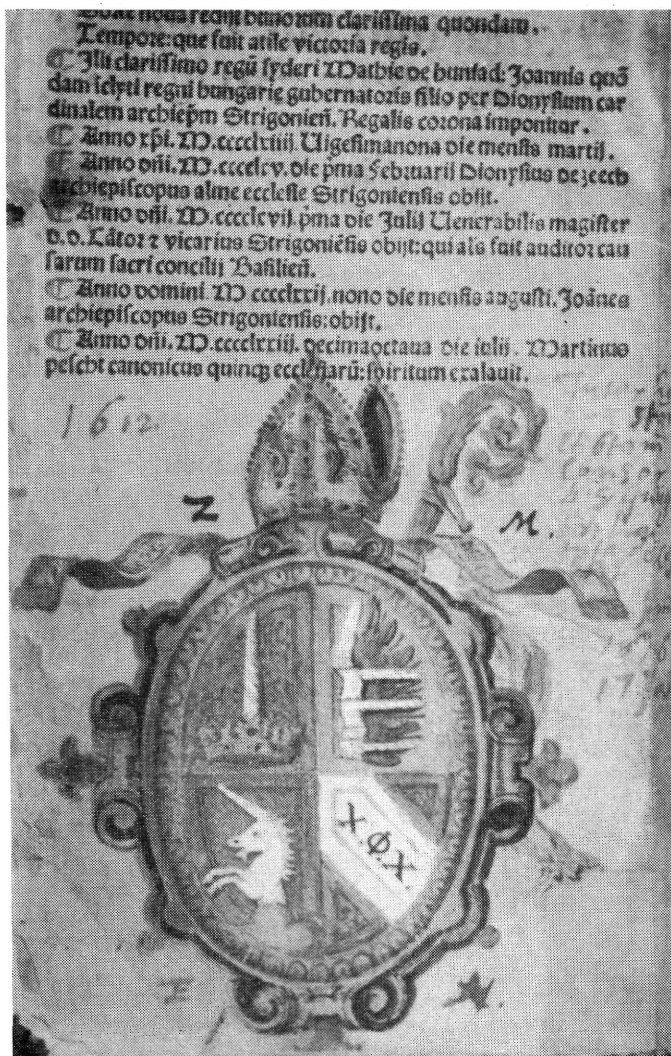 noua redijt bunorum clarissima quondam.
Tempore: que fuit atile victoria regis.
Illi clarissimo regũ syderi Mathie de huniad: Joannis quõ
dam iclyti regni hungarie gubernatoris filio per Dionysium car
dinalem archiep̃m Strigonieñ. Regalis corona imponitur.
Anno xp̃i. M.cccclxiiij. Uigesimanona die mensis martij.
Anno dñi. M.cccclxv. die p̃ma Februarij Dionysius de zeech
archiepiscopus alme ecclesie Strigoniensis obijt.
Anno dñi. M.cccclxvij. p̃ma die Julij Uenerabilis magister
d.d. Lãtor ⁊ vicarius Strigoniẽsis obijt: qui als fuit auditor cau
sarum sacri concilij Basilieñ.
Anno domini. M cccclxxij. nono die mensis augusti. Joãnes
archiepiscopus Strigoniensis: obijt.
Anno dñi. M.cccclxxiij. decimaoctaua die iulij. Martinus
pescht canonicus quinqꝫ ecclesiarũ: spiritum exalauit.
1612.
Z M.
X.Φ.X.
E